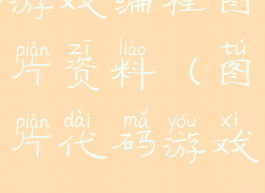 游戏编程图
piàn zī liào tú
片资料（图
piàn dài mǎ yóu xì
片代码游戏